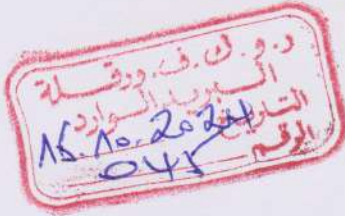 د. و. ك. ف. ورقلة
البريد الوارد
التاريخ 15.10.2024
الرقم 045